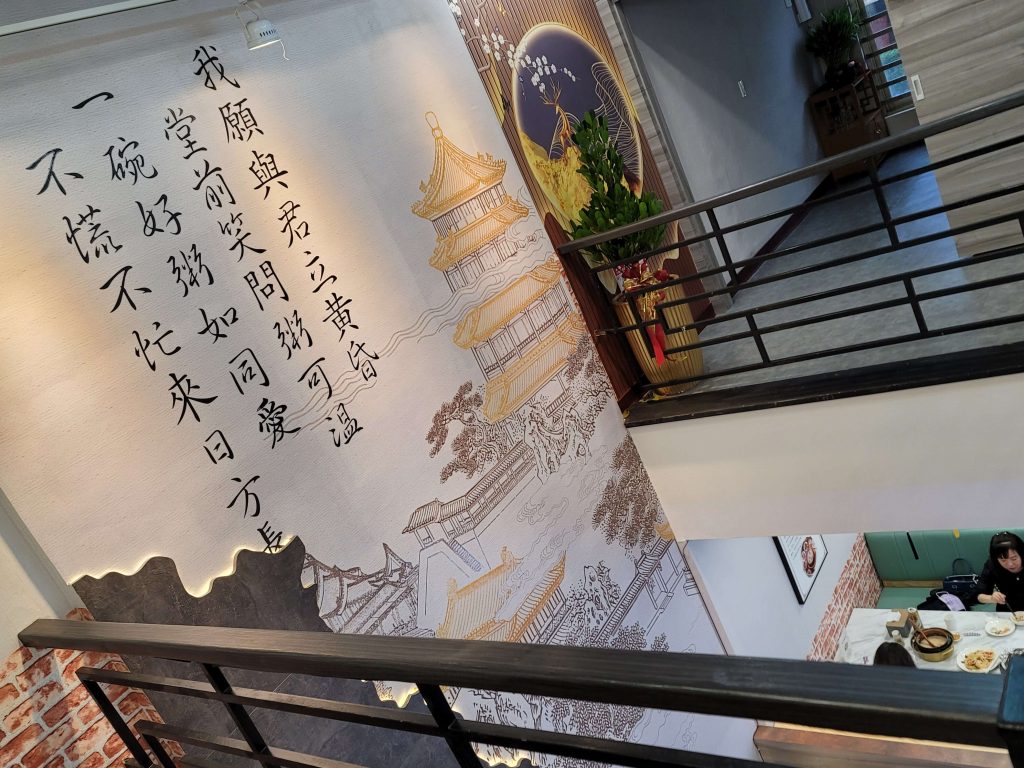 我願與君立黃昏
堂前笑問粥可溫
一碗好粥如同愛
不慌不忙來日方長